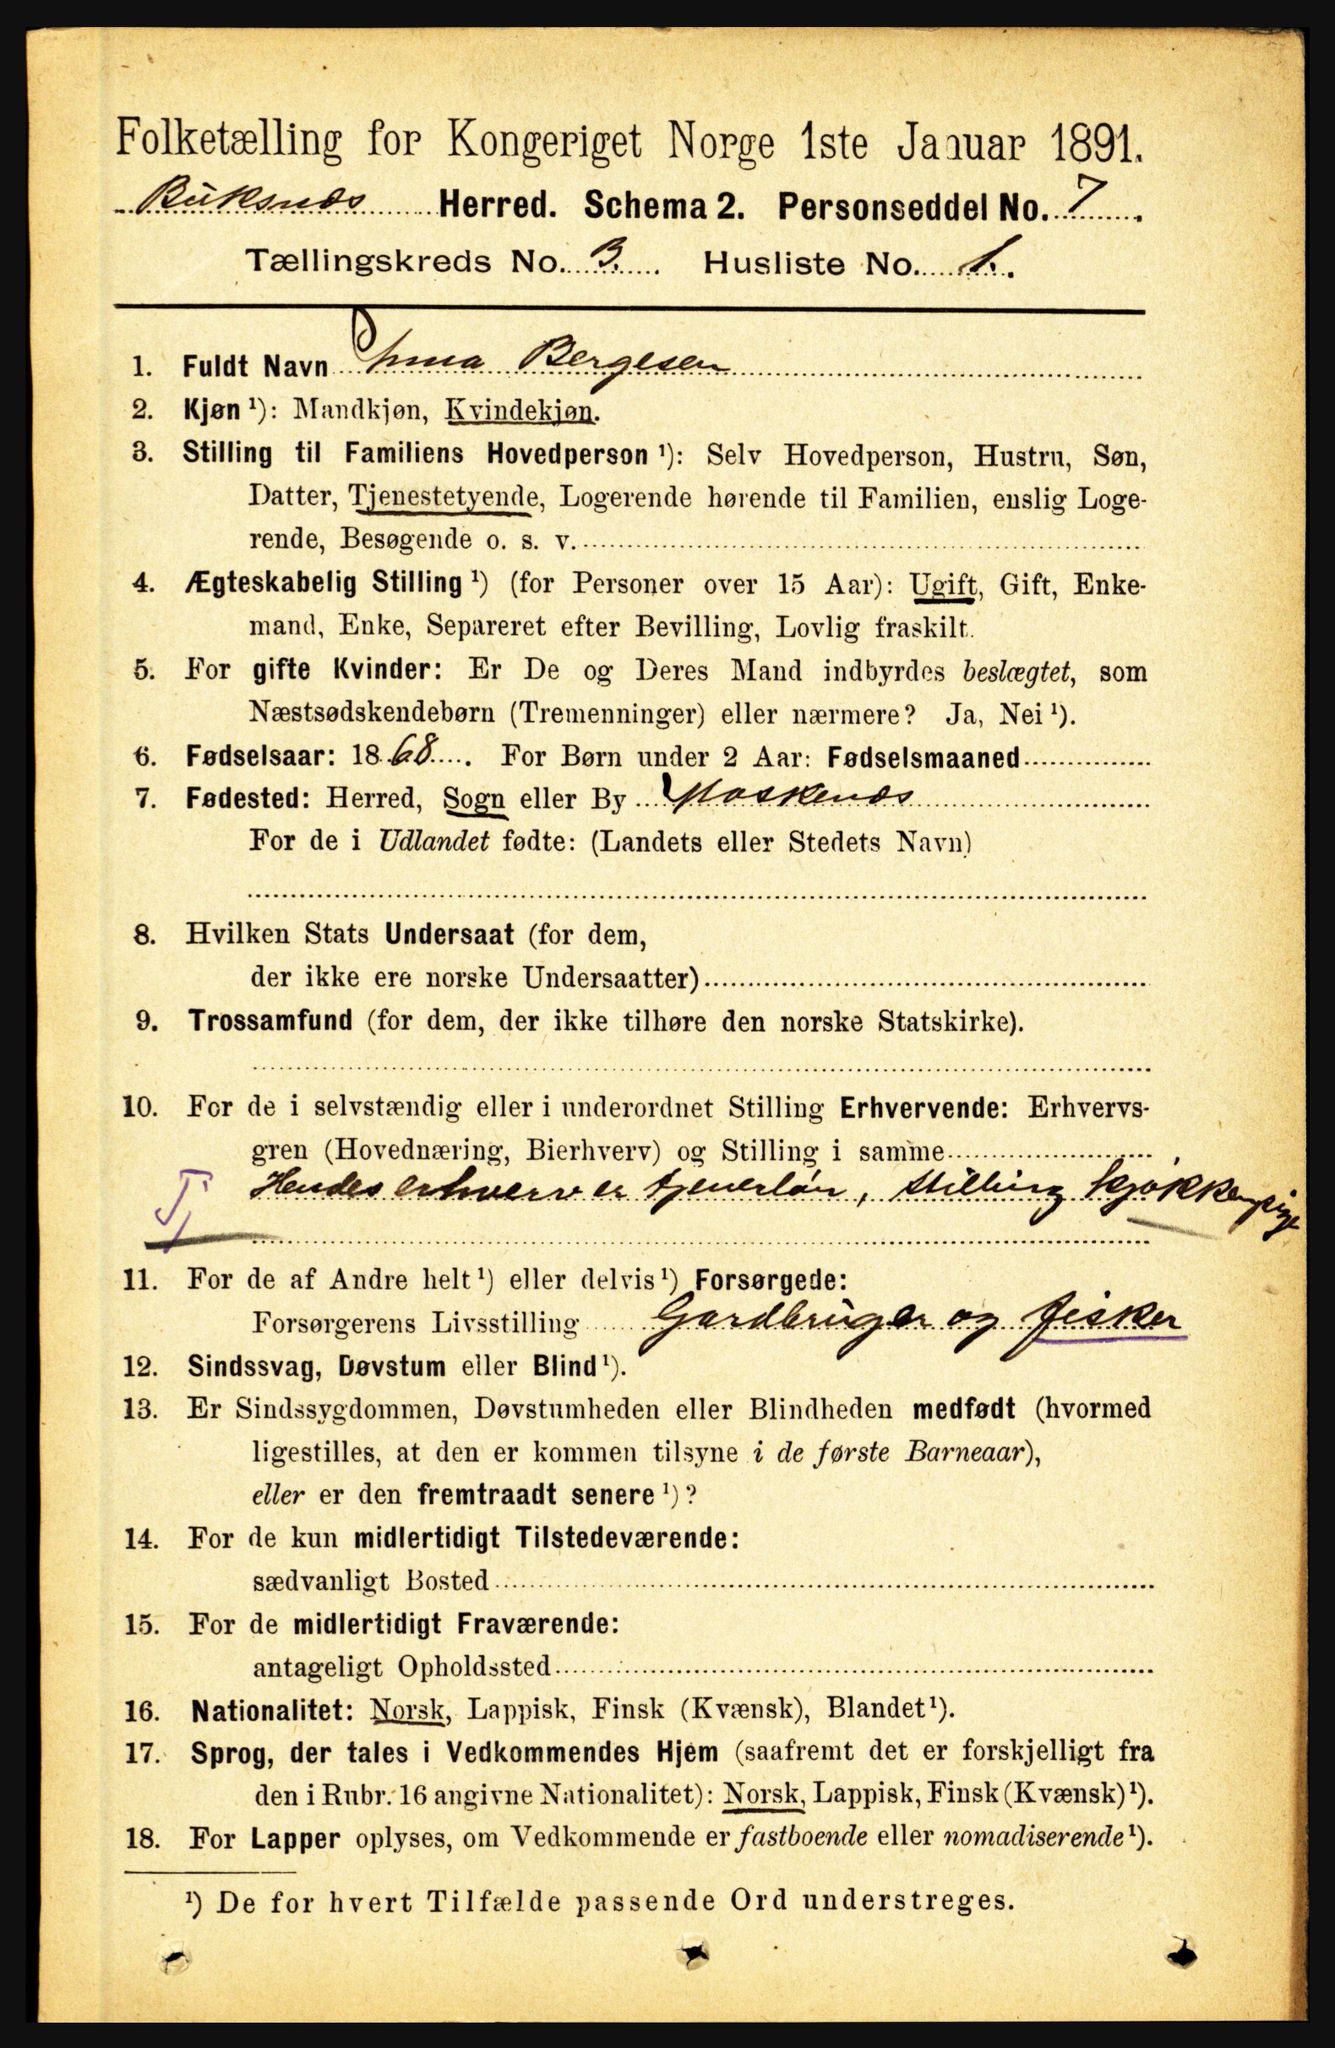 Folketælling for Kongeriget Norge 1ste Januar 1891.
Buksnæs Herred. Schema 2. Personseddel No. 7.
Tællingskreds No. 3. Husliste No. 1.
1. Fuldt Navn Anna Bergesen
2. Kjøn ¹): Mandkjøn, Kvindekjøn.
3. Stilling til Familiens Hovedperson ¹): Selv Hovedperson, Hustru, Søn,
Datter, Tjenestetyende, Logerende hørende til Familien, enslig Loge-
rende, Besøgende o. s. v.
4. Ægteskabelig Stilling ¹) (for Personer over 15 Aar): Ugift, Gift, Enke-
mand, Enke, Separeret efter Bevilling, Lovlig fraskilt.
5. For gifte Kvinder: Er De og Deres Mand indbyrdes beslægtet, som
Næstsødskendebørn (Tremenninger) eller nærmere? Ja, Nei ¹).
6. Fødselsaar: 1868. For Børn under 2 Aar: Fødselsmaaned
7. Fødested: Herred, Sogn eller By Moskenæs
For de i Udlandet fødte: (Landets eller Stedets Navn)
8. Hvilken Stats Undersaat (for dem,
der ikke ere norske Undersaatter)
9. Trossamfund (for dem, der ikke tilhøre den norske Statskirke).
10. For de i selvstændig eller i underordnet Stilling Erhvervende: Erhvervs-
gren (Hovednæring, Bierhverv) og Stilling i samme
Hendes erhverv er tjenerløn, stilling kjøkkenpige
Tj
11. For de af Andre helt ¹) eller delvis ¹) Forsørgede:
Forsørgerens Livsstilling Gardbruger og fisker
12. Sindssvag, Døvstum eller Blind ¹).
13. Er Sindssygdommen, Døvstumheden eller Blindheden medfødt (hvormed
ligestilles, at den er kommen tilsyne i de første Barneaar),
eller er den fremtraadt senere ¹)?
14. For de kun midlertidigt Tilstedeværende:
sædvanligt Bosted
15. For de midlertidigt Fraværende:
antageligt Opholdssted
16. Nationalitet: Norsk, Lappisk, Finsk (Kvænsk), Blandet ¹).
17. Sprog, der tales i Vedkommendes Hjem (saafremt det er forskjelligt fra
den i Rubr. 16 angivne Nationalitet): Norsk, Lappisk, Finsk (Kvænsk) ¹).
18. For Lapper oplyses, om Vedkommende er fastboende eller nomadiserende ¹).
¹) De for hvert Tilfælde passende Ord understreges.